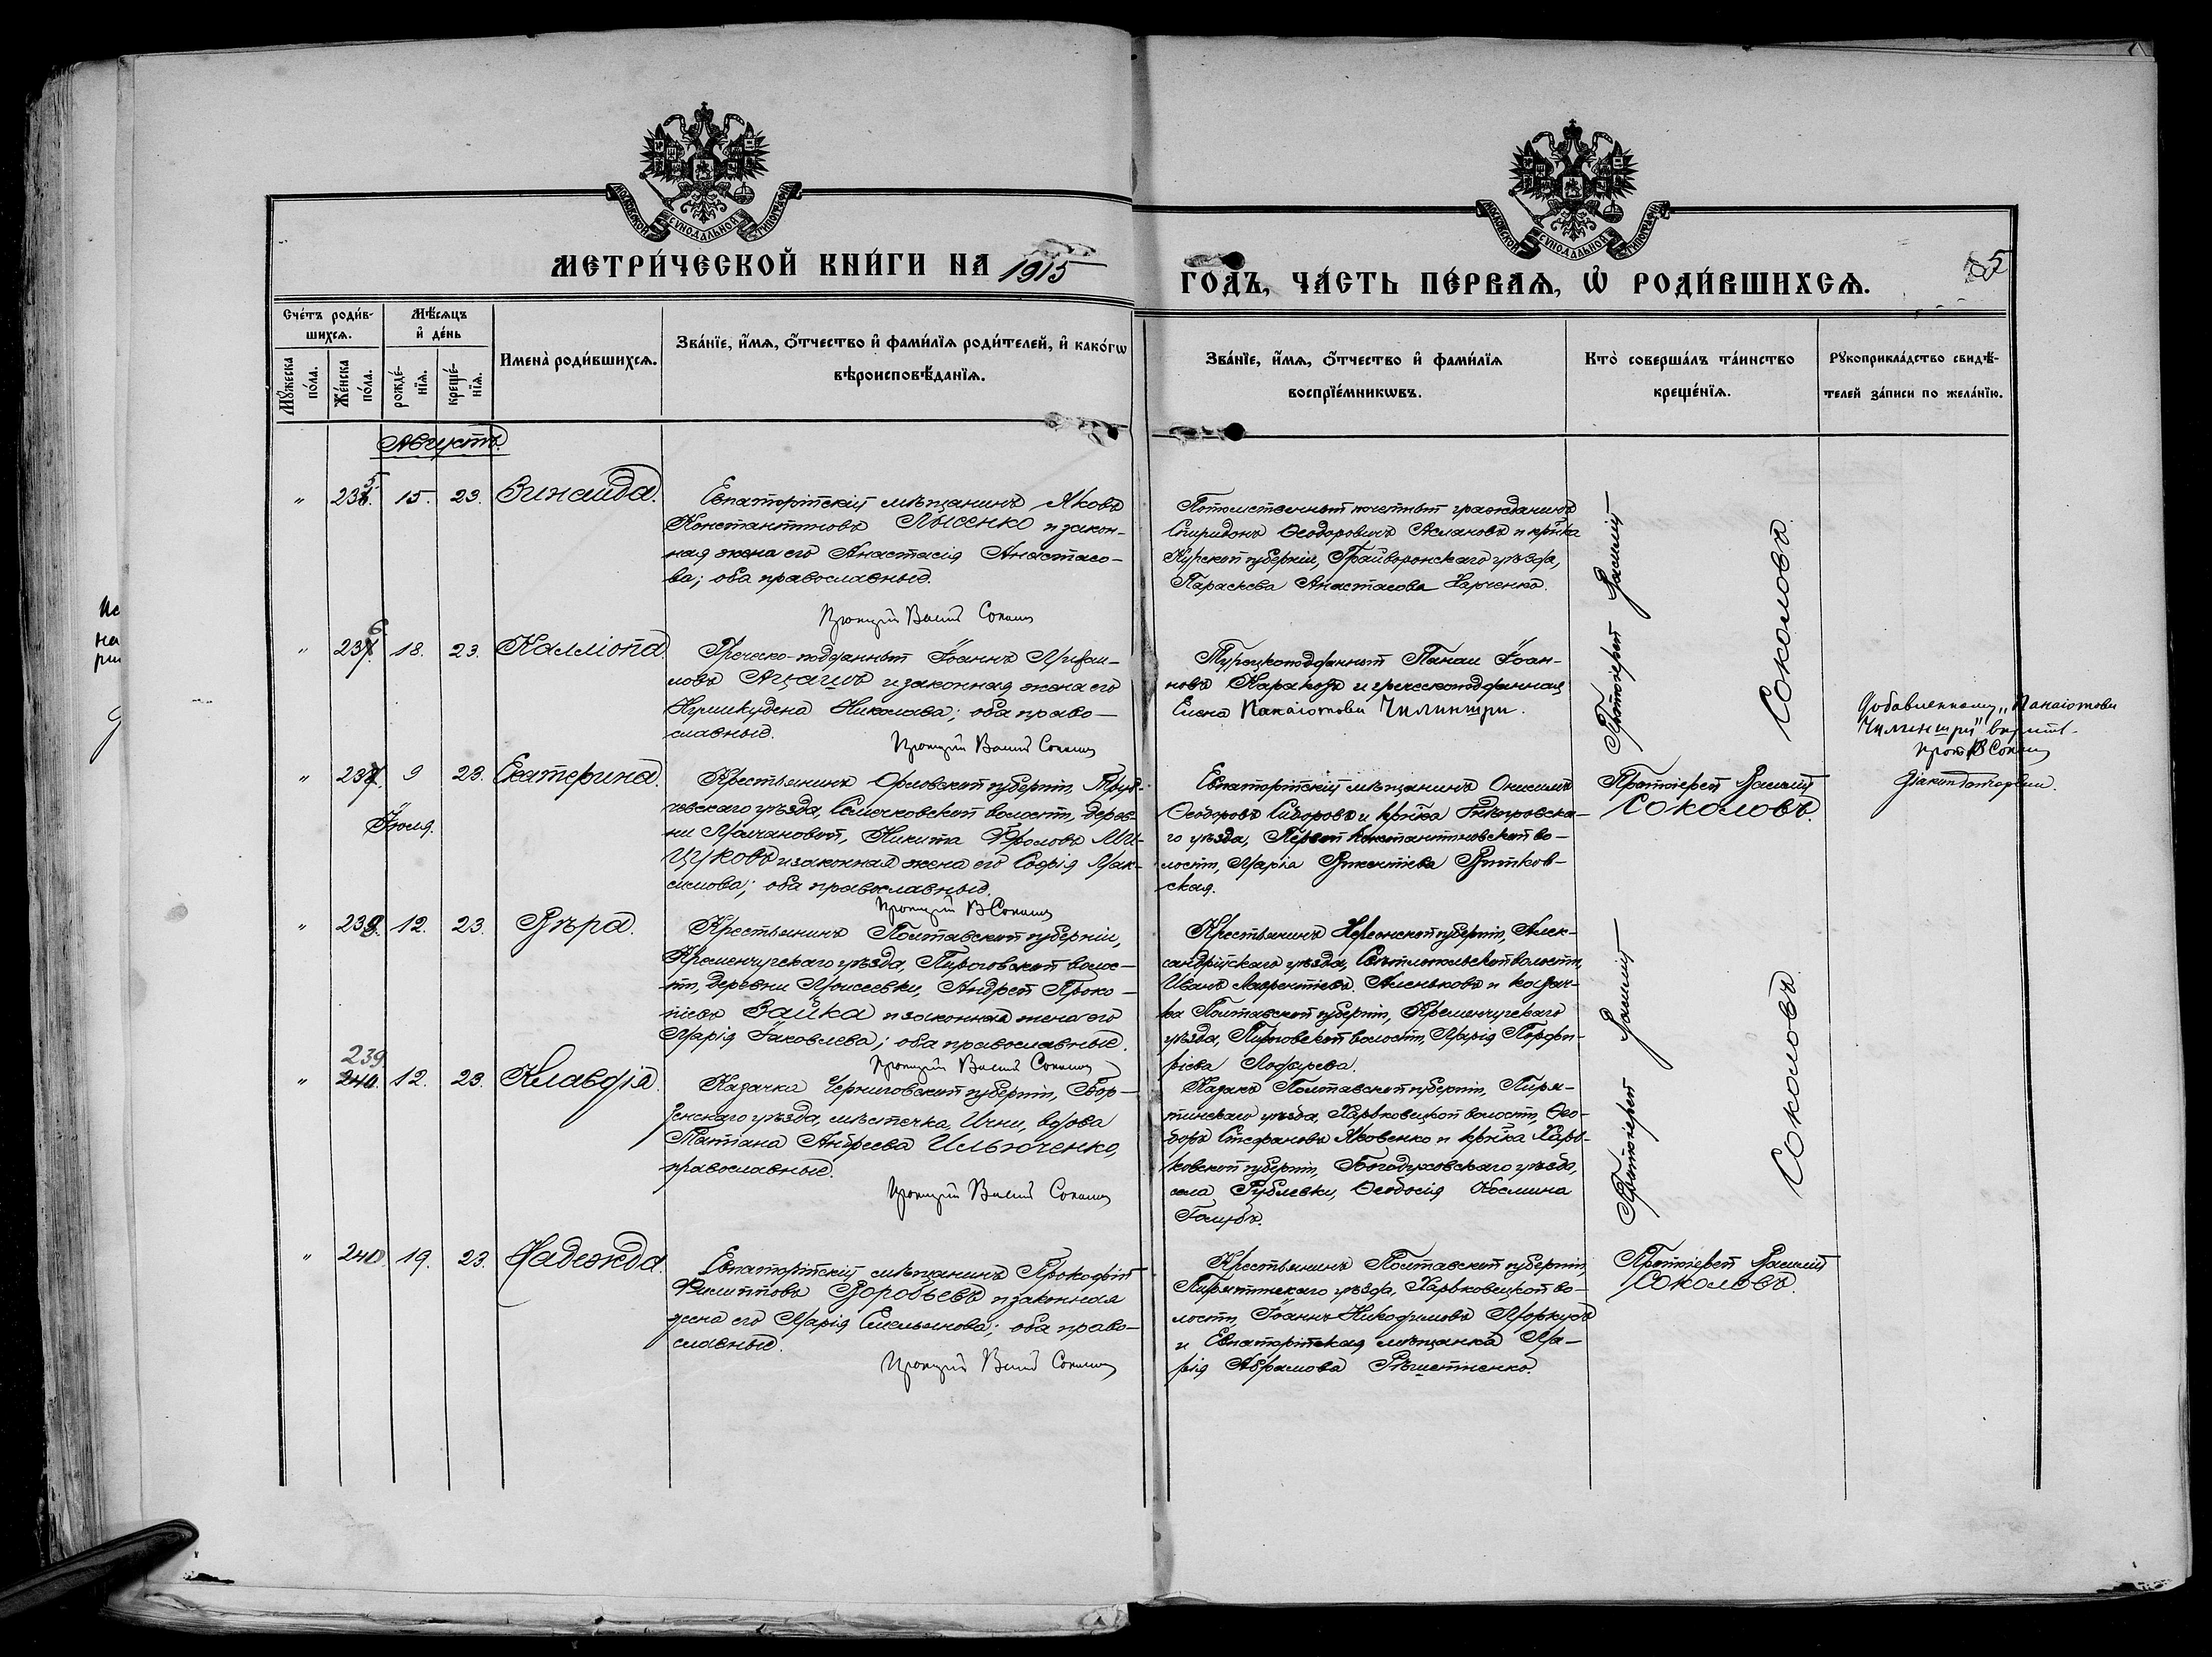 МЕТРИ́ЧЕСКОЙ КНИ́ГИ НА 1915
ГОДЪ, ЧА́СТЬ ПЕ́РВАѦ, Ѡ РОДИ́ВШИХСѦ.
85
МОСКОВСКОЙ СѴНОДАЛЬНОЙ ТИПОГРАФІИ
МОСКОВСКОЙ СѴНОДАЛЬНОЙ ТИПОГРАФІИ
Сче́тъ роди́в-
шихсѧ.
Мꙋ́жеска по́ла.
Же́нска по́ла.
Мѣ́сѧцъ
и҆ де́нь
рожде́-
нїѧ.
креще́-
нїѧ.
Имена̀ роди́вшихсѧ.
Зва́нїе, и҆́мѧ, ѻ҆́тчество и҆ фами́лїѧ роди́телей, и҆ како́гѡ
вѣроисповѣ́данїѧ.
Зва́нїе, и҆́мѧ, ѻ҆́тчество и҆ фами́лїѧ
воспрїе́мникѡвъ.
Кто̀ соверша́лъ та́инство
креще́нїѧ.
Рꙋкоприкла́дство свидѣ́-
телей за́писи по жела́нїю.
Августъ.
" 235. 15. 23. Зинаида.
Евпаторійскій мѣщанинъ Яковъ
Константиновъ Лысенко и закон-
ная жена его Анастасія Анастасо-
ва; оба православные.
Протоіерей Василій Соколовъ
Потомственный почетный гражданинъ
Спиридонъ Ѳеодоровичъ Аслановъ и кр-нка
Курской губерніи, Грайворонскаго уѣзда,
Параскева Анастасова Харченко.
Протоіерей Василій
Соколовъ.
" 236. 18. 23. Калліопа.
Греческо-подданный Іоаннъ Михаи-
ловъ и законная жена его
Николаева; оба право-
славные.
Протоіерей Василій Соколовъ
Турецкоподданный Панаи Іоан-
новъ и греческоподданная
Елена Панаіотова Чилингири.
Добавленному „Панаіотова
Чилингири" вѣрить.
Прот. В Соколовъ
" 237. 9 23. Екатерина.
Іюля.
Крестьянинъ Орловской губерніи, Труб-
чевскаго уѣзда, Семячковской волости, дерев-
ни Молчановой, Никита Фроловъ Ми-
цуковъ и законная жена его Софія Мак-
симова; оба православные.
Протоіерей В Соколовъ
Евпаторійскій мѣщанинъ Онисимъ
Ѳеодоровъ Сидоровъ и кр-нка Днѣпровска-
го уѣзда, Первой Константиновской во-
лости, Марія Викентіева Витков-
ская.
Протоіерей Василій
Соколовъ.
Діаконъ
" 238. 12. 23. Вѣра.
Крестьянинъ Полтавской губерніи,
Кременчугскаго уѣзда, Пироговской волос-
ти, деревни Моисеевки, Андрей Проко-
піевъ Зайка и законная жена его
Марія Іаковлева; оба православные.
Протоіерей Василій Соколовъ
Крестьянинъ Херсонской губерніи, Алек-
сандрійскаго уѣзда, волости,
Иванъ Лаврентіевъ Аленьковъ и козач-
ка Полтавской губерніи, Кременчугскаго
уѣзда, Пироговской волости, Марія Порфи-
ріева
Протоіерей Василій
Соколовъ.
239.
" 240. 12. 23. Клавдія.
Казачка Черниговской губерніи, Бор-
зенскаго уѣзда, мѣстечка, Ични, вдова
Татіана Андреева Ильюченко,
православные.
Протоіерей Василій Соколовъ
Казакъ Полтавской губерніи, Пиря-
тинскаго уѣзда, Харьковецкой волости, Ѳео-
доръ Стефановъ Яковенко и кр-нка Харь-
ковской губерніи, Богодуховскаго уѣзда,
села, Рублевки, Ѳеодосія Космина
Голубъ.
" 240. 19. 23. Надежда.
Евпаторійскій мѣщанинъ Прокофій
Филипповъ Воробьевъ и законная
жена его Марія Емельянова; оба право-
славные.
Протоіерей Василій Соколовъ
Крестьянинъ Полтавской губерніи,
Пирятинскаго уѣзда, Харьковецкой во-
лости, Іоаннъ Никодимовъ Моркусъ
и Евпаторійская мѣщанка Ма-
рія Абрамова Рѣшетненко.
Протоіерей Василій
Соколовъ.